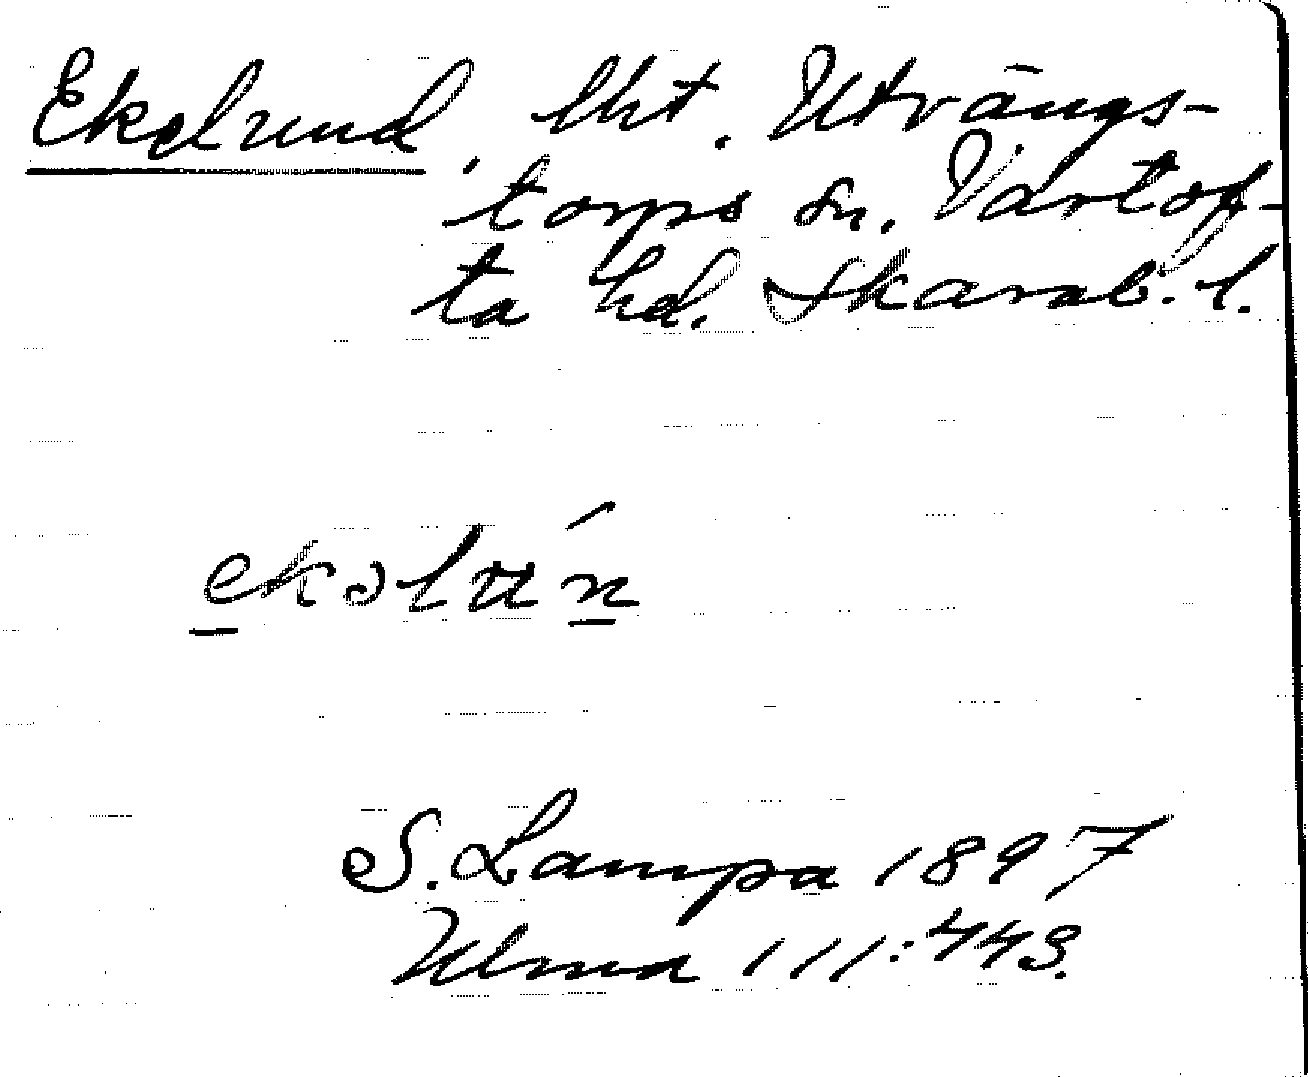 Ekelund, lht. Utvängs-
torps sn. Vartof-
ta hd. Skarab. l.
ekolún
S. Lampa 1897
Ulma 111:443.